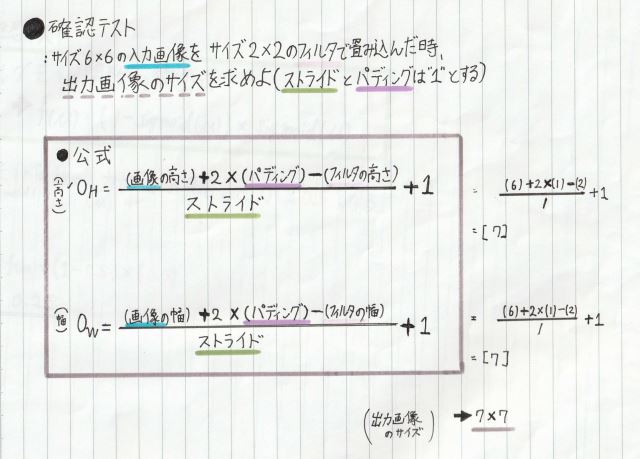 ●確認テスト
:サイズ6×6の入力画像をサイズ2×2のフィルタで畳み込んだ時、
出力画像のサイズを求めよ(ストライドとパディングは"1"とする)
●公式
(高さ) OH = (画像の高さ)+2×(パディング)−(フィルタの高さ) / ストライド +1
= (6)+2×(1)−(2) / 1 +1
= [7]
(幅) OW = (画像の幅)+2×(パディング)−(フィルタの幅) / ストライド +1
= (6)+2×(1)−(2) / 1 +1
= [7]
(出力画像のサイズ) → 7×7